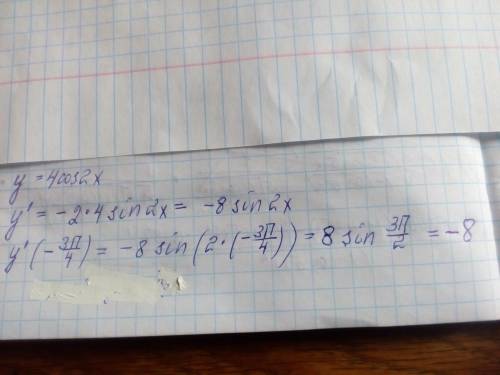 y = 4cos2x
y' = -2·4sin2x = -8sin2x
y'(-3π/4) = -8 sin(2·(-3π/4)) = 8 sin 3π/2 = -8